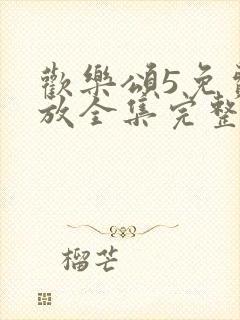 歡樂頌5免費
放全集完整
榴芒